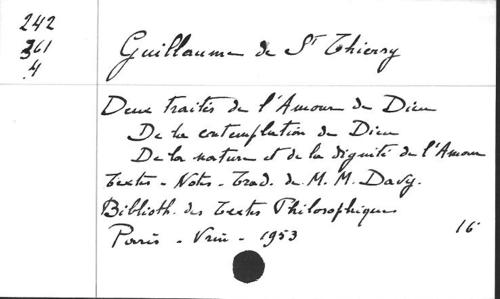 242
361
4
Guillaume de St Thierry
Deux traités de l'Amour de Dieu
De la contemplation de Dieu
De la nature et de la dignité de l'Amour
Textes - Notes - Trad. de M. M. Davy.
Biblioth. des Textes Philosophiques
Paris - Vrin - 1953
16